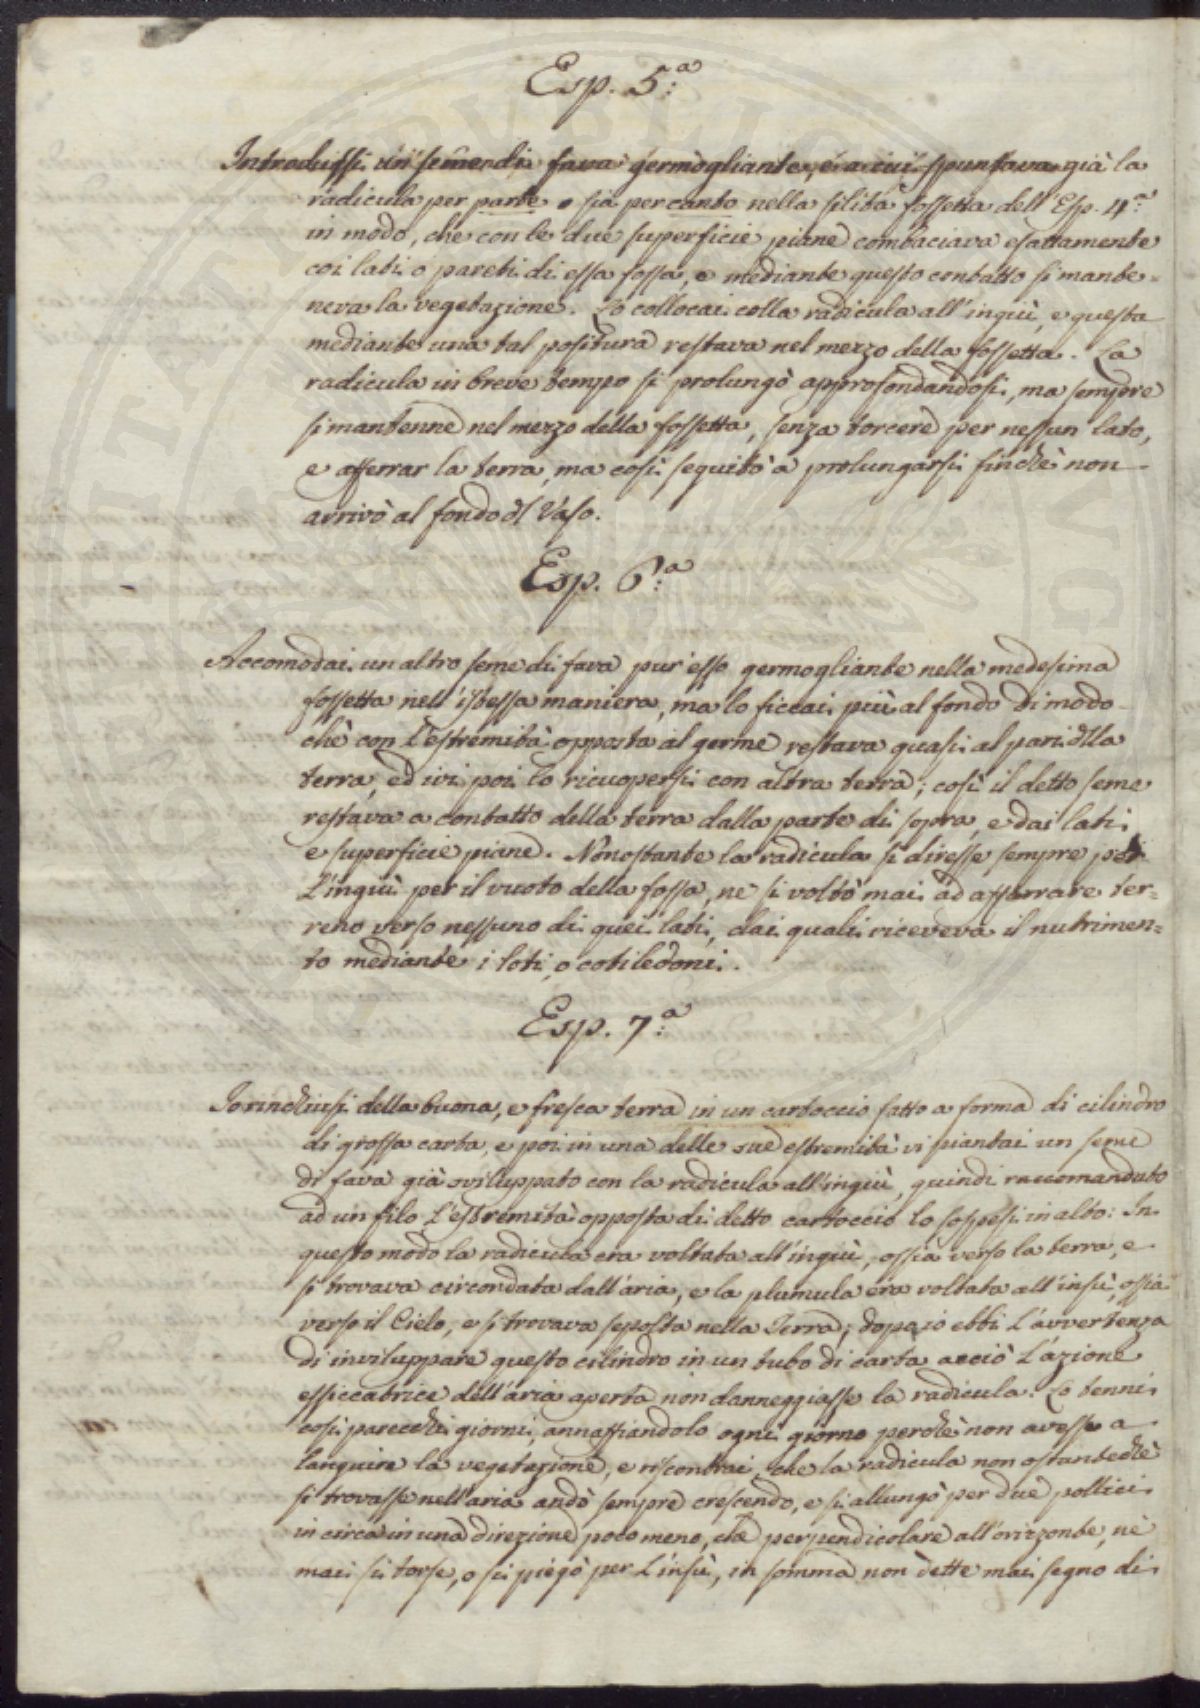 Esp. 5.ª
Introdussi un seme di fava germogliante, e a cui spuntava già la
radicula per parte o sia per canto nella solita fossetta dell'Esp. 4.ª
in modo, che con le due superficie piane combaciava esattamente
coi lati o pareti di essa fossa, e mediante questo contatto si mante-
neva la vegetazione. Lo collocai colla radicula all'ingiù, e questa
mediante una tal positura restava nel mezzo della fossetta. La
radicula in breve tempo si prolungò approfondandosi, ma sempre
si mantenne nel mezzo della fossetta, senza torcere per nessun lato,
e afferrar la terra, ma così seguitò a prolungarsi finchè non
arrivò al fondo dl Vaso.
Esp. 6.ª
Accomodai un altro seme di fava pur'esso germogliante nella medesima
fossetta nell'istessa maniera, ma lo ficcai più al fondo di modo
chè con l'estremità opposta al germe restava quasi al pari dlla
terra, ed ivi poi lo ricuopersi con altra terra; così il detto seme
restava a contatto della terra dalla parte di sopra, e dai lati
e superficie piane. Nonostante la radicula si diresse sempre per
l'ingiù per il vuoto della fossa, ne si voltò mai ad afferrare ter=
reno verso nessuno di quei lati, dai quali riceveva il nutrimen=
to mediante i loti, o cotiledoni.
Esp. 7.ª
Io rinchiusi della buona, e fresca terra in un cartoccio fatto a forma di cilindro
di grossa carta, e poi in una delle sue estremità vi piantai un seme
di fava già sviluppato con la radicula all'ingiù, quindi raccomandato
ad un filo l'estremità opposta di detto cartoccio lo sospesi in alto: In
questo modo la radicula era voltata all'ingiù, ossia verso la terra, e
si trovava circondata dall'aria, e la plumula era voltata all'insù, ossia
verso il Cielo, e si trovava sepolta nella Terra; dopo io ebbi l'avvertenza
di inviluppare questo cilindro in un tubo di carta acciò l'azione
essiccatrice dell'aria aperta non danneggiasse la radicula. Lo tenni
così parecchi giorni, annaffiandolo ogni giorno perchè non avesse a
languire la vegetazione, e riscontrai, che la radicula non ostantechè
si trovasse nell'aria andò sempre crescendo, e si allungò per due pollici
in circa in una direzione poco meno, che perpendicolare all'orizzonte, nè
mai si torse, o si piegò per l'insù, in somma non dette mai segno di